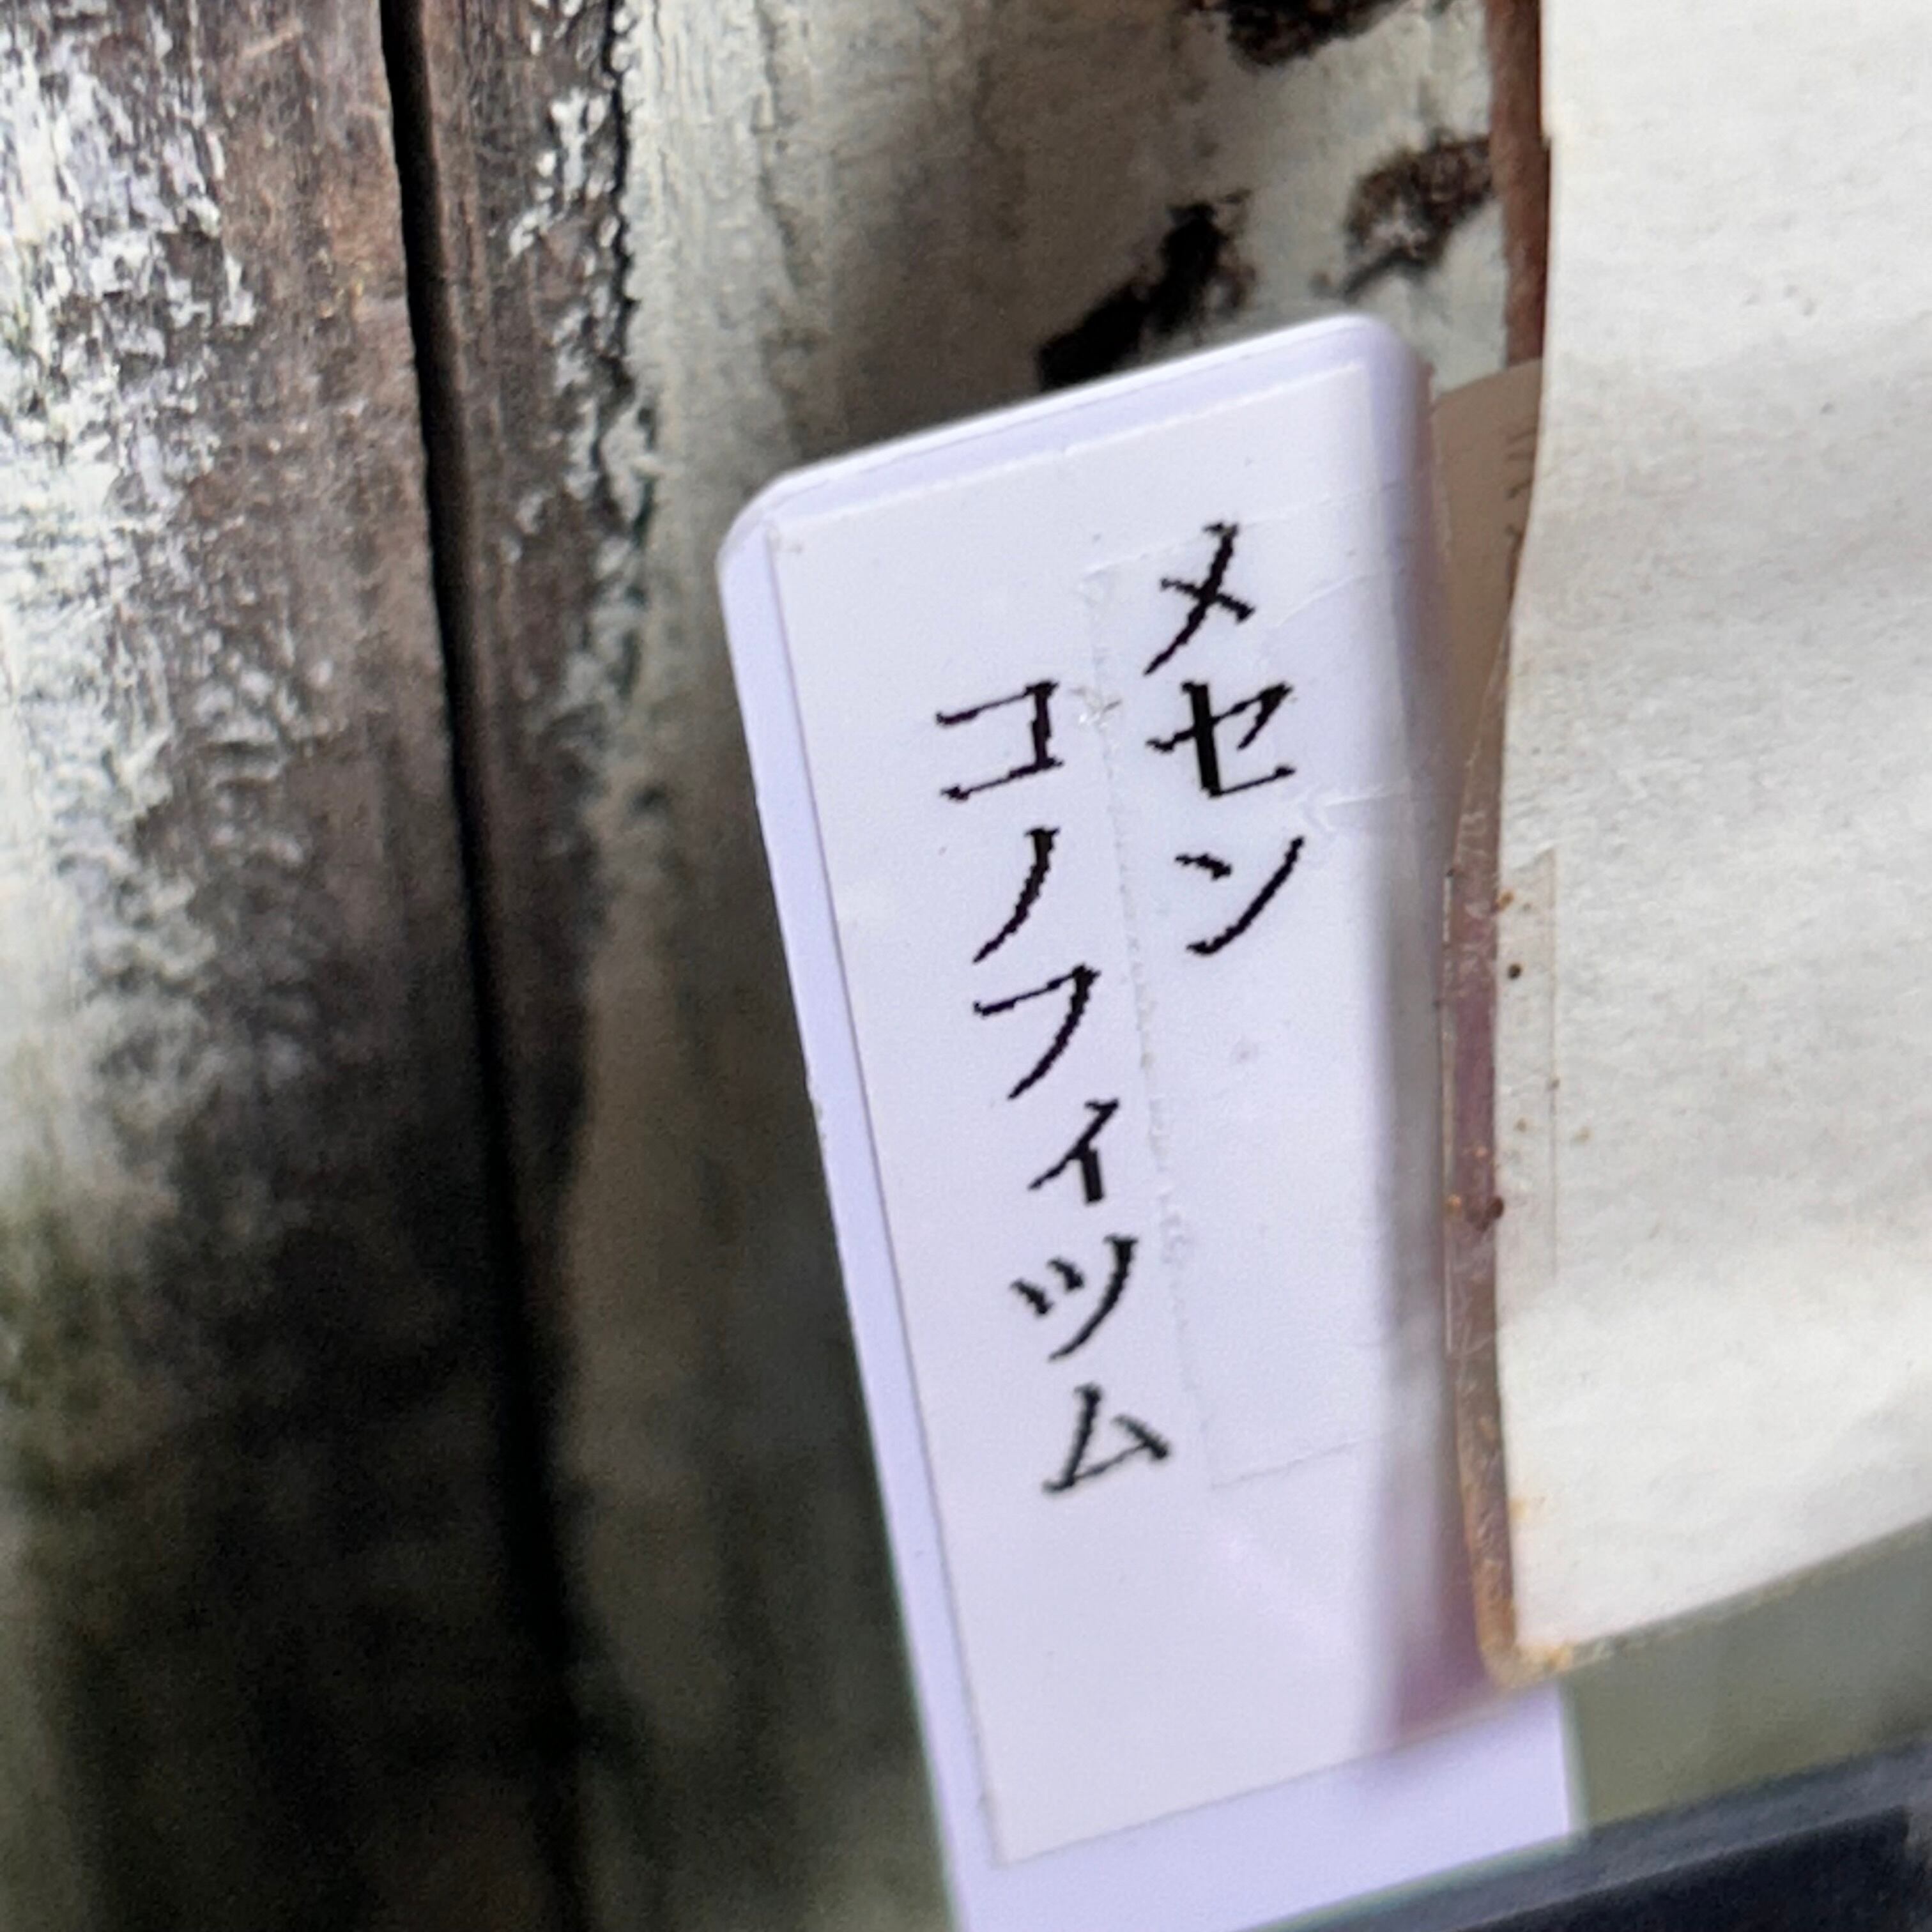 メセン
コノフィツム